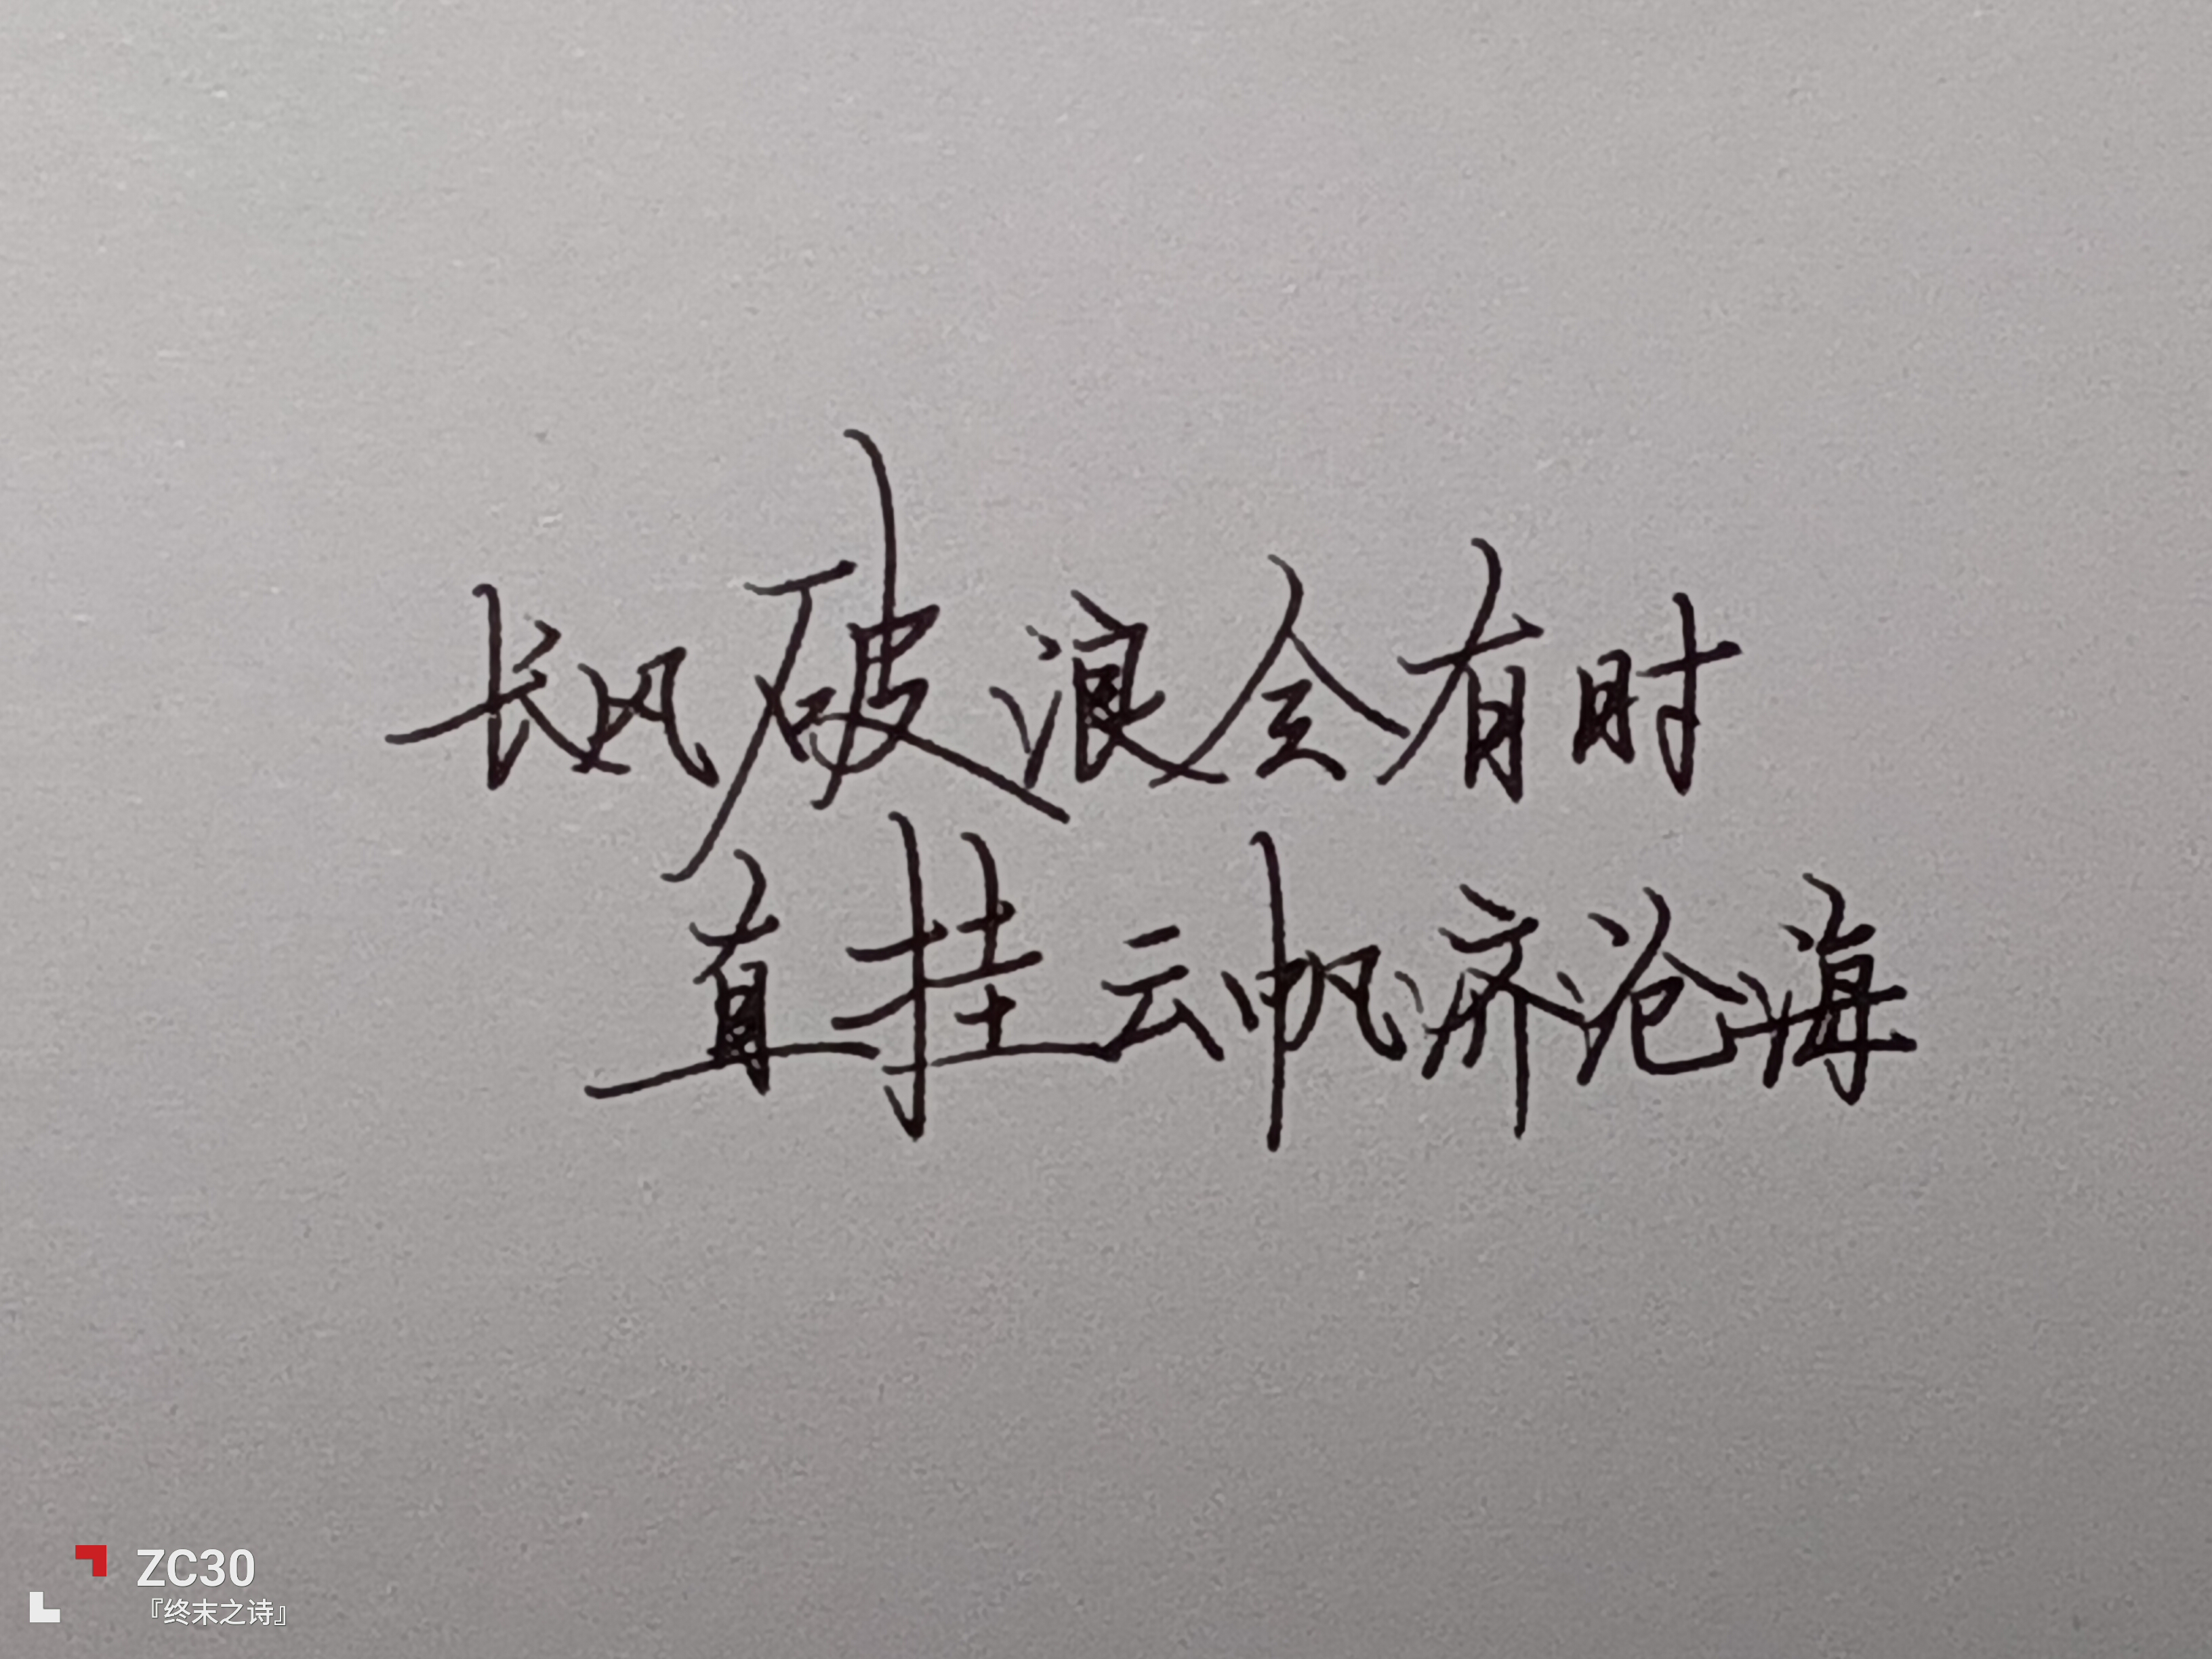 长风破浪会有时
直挂云帆济沧海
ZC30
『终末之诗』